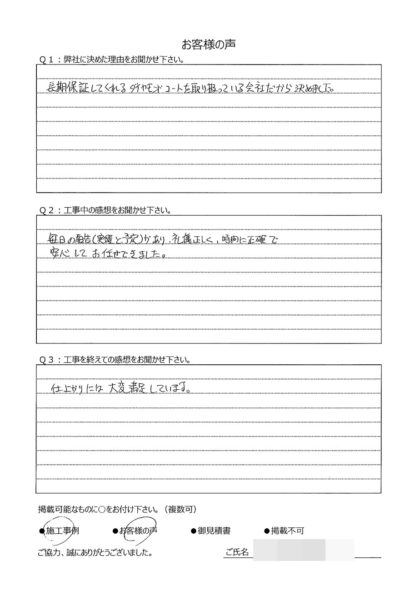 お客様の声
Q1：弊社に決めた理由をお聞かせ下さい。
長期保証してくれるダイヤモンドコートを取り扱っている会社だから決めました。
Q2：工事中の感想をお聞かせ下さい。
毎日の報告(実績と予定)があり、礼儀正しく、時間に正確で
安心してお任せできました。
Q3：工事を終えての感想をお聞かせ下さい。
仕上がりには大変満足しています。
掲載可能なものに○をお付け下さい。（複数可）
●施工事例 ●お客様の声 ●御見積書 ●掲載不可
ご協力、誠にありがとうございました。 ご氏名